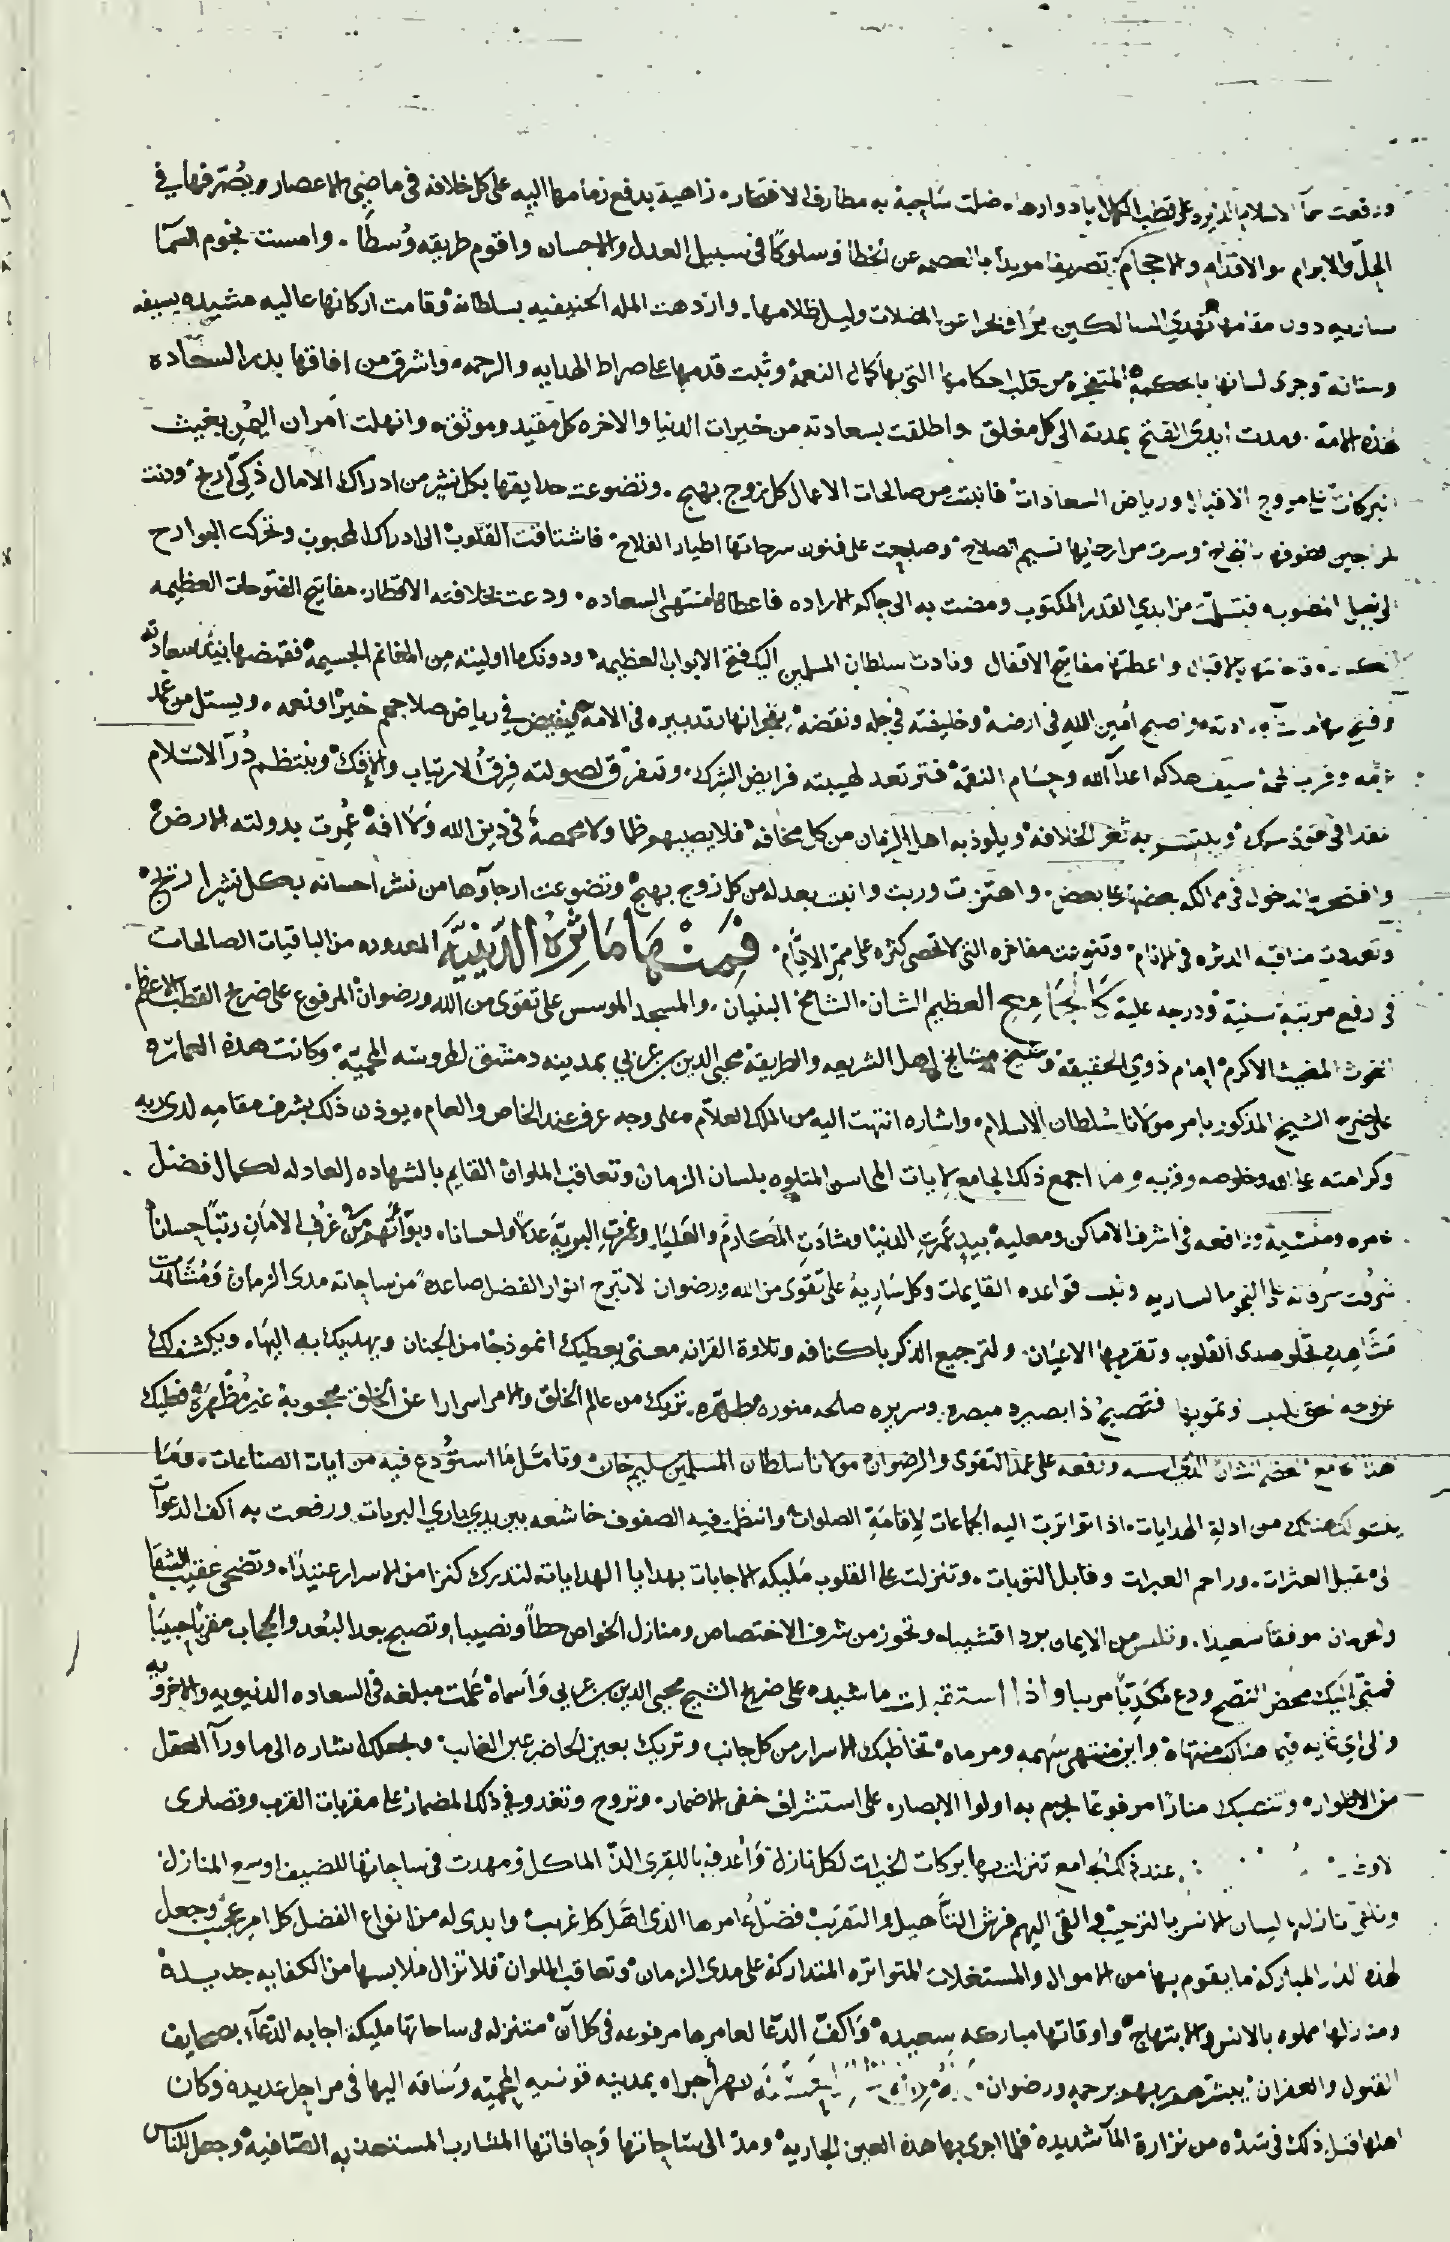 ورفعت سمآ الاسلام على قطب الكمال بادوارها فضلت ساحبة به مطارف الافتخار زاهية بدفع زمامها اليه على كل خلافه فى ماضى الاعصار وبصرفها فى
الحل والابرام والاقدام والاحجام تصريفا مويدا بالعصمه عن الخطا وسلوكا فى سبيل العدل والاحسان واقوم طريقه وسطا وامست نجوم السما
ساريه دون مقامها تهدى السالكين برا وبحرا عن المضلات وليل ظلامها وازدهت المله الحنيفيه بسلطانه وقامت اركانها عاليه مشيده بسيفه
وسنانه وجرى لسانها بالحكمة المتفجره من قلب احكامها التى بها كمال النعمة وثبت قدمها على صراط الهدايه والرحمه واشرق من افاقها بدر السعاده
هذه الامة ومدت ايدى الفتح بمدته الى كل مغلق واطلقت بسعادته من خيرات الدنيا والاخره كل مقيد وموثق وانهلت امزان اليمن بغيث
البركات على مروج الاقبال ورياض السعادات فانبتت من صالحات الاعمال كل زوج بهيج وتضوعت حدايقها بكل نشر من ادراك الامال ذكى اريج ودنت
وسرت من ارجايها نسيم الصلاح وصدحت على فنون سرحاتها اطيار الفلاح فاشتاقت القلوب الى ادراك المحبوب وتحركت الجوارح
الى نيل فتسلمت من ايدي القدر المكتوب ومضت به الى حاكم الاراده فاعطاها منتهى السعاده ودعت لخلافته الاقطار مفاتيح الفتوحات العظيمه
بالاقبال واعطتها مفاتيح الاقفال ونادت سلطان المسلمين اليك فتح الابواب العظيمه ودونكها اولينه من المغانم الجسيمة فقبضها بسعادته
وفتح بها واصبح امين الله فى ارضه وخليفته فى حله ونقضه يفجر انهار تدبيره فى الامة ليفيض فى رياض صلاحهم خيرا ونعمه ويستل من غمد
سيف هلاكه اعدآ الله وحسام النقمة فترتعد لهيبته فرايض الشرك وتتفرق لصولته فرق الارتياب والافك وينتظم در الاسلام
ويبتسم به ثغر الخلافه ويلوذ به اهل الزمان من كل مخافة فلا يصيبهم ظما ولا مخمصة فى دين الله ولا افة عمرت بدولته الارض
الدخول فى ممالكه بعضها على بعض واهتزت وربت وانبتت بعدله من كل زوج بهيج وتضوعت ارجآوها من نشر احسانه بكل نشر اريج
وتعددت مناقبه الدثره فى الانام وتنوعت مفاخره التى لا تحصى كثره على ممر الايام فمنها ماثره الدينية المعدوده من الباقيات الصالحات
فى رفع مرتبة سنية ودرجه علية كالجامع العظيم الشان الشامخ البنيان والمسجد الموسس على تقوى من الله ورضوان المرفوع على ضريح القطب الاعظم
الغوث المغيث الاكرم امام ذوي الحقيقة وشيخ مشايخ اهل الشريعه والطريقة محيى الدين بن عربي بمدينه دمشق المحروسه المحمية وكانت هذه العماره
على ضريح الشيخ المذكور بامر مولانا سلطان الاسلام واشاره انتهت اليه من الملك العلام على وجه عرف عند الخاص والعام يوذن ذلك بشرف مقامه لدى ربه
وكرامته على الله وخلوصه وقربه وما اجمع ذلك الجامع لايات المحاسن المتلوه بلسان الزمان وتعاقب الملوان القايم بالشهاده العادله لكمال فضل
عامره ومنشيه ورافعه فى اشرف الاماكن ومعليه بيد عمرت الدنيا وشادت المكارم والعليا وغمرت البرية عدلا واحسانا وبواتهم من غرف الامان رتبا حسانا
شرفت شرفاته على النجوم الساريه قواعده القايمات وكل سارية على تقوى من الله ورضوان لا تبرح انوار الفضل صاعدة من ساحاته مدى الزمان ومشاهدت
مشاهده تجلو صدى القلوب وتقر بها الاعيان ولترجيع الذكر باكنافه وتلاوة القران معنى يعطيك انموذجا من الجنان ويهديك به البهاه ويكشف لك
عن وجه فتصبح ذا بصيره مبصره وسريره صالحه منوره مطهره تريك من عالم الخلق والامر اسرارا عن الخلق محجوبة غير مظهرة فعليك
هذا الجامع العظيم الشان الذى اسسه ورفعه على عمد التقوى والرضوان مولانا سلطان المسلمين سليم خان وتامل ما استودع فيه من ايات الصناعات وما
هنالك من ادلة الهدايات اذا تواترت اليه الجماعات لاقامة الصلوات وانتظمت فيه الصفوف خاشعه بين يدي باري البريات ورفعت به اكف الدعوات
الى مقيل العثرات وراحم العبرات وقابل التوبات وتنزلت على القلوب مليكه الاجابات بهدايا الهدايات لتدرك كنزا من الاسرار عتيدا وتضحى عقيب الشقا
والحرمان موفقا سعيدا وتلبس من الايمان بردا قشيبا وتحوز من شرف الاختصاص ومنازل الخواص حظا ونصيبا وتصبح بعد البعد والحجاب مقربا حبيبا
اليك محض النصح ودع مكذبا مريبا واذا ما شيده على ضريح الشيخ محيى الدين بن عربي واسماه علمت مبلغه فى السعاده الدنيويه والاخرويه
والى اي غايه فيما هنالك منتهاه واين منتهى سهمه ومرماه تخاطبك الاسرار من كل جانب وتريك بعين الحاضر عين الغايب وتجعلك اشاره الى ما ورآ العقل
من الاطوار وتنصبك منارا مرفوعا به اولوا الابصار على استشراف خفى الاضمار وتروح وتغدو فى ذلك المضمار على مقربات القرب وقصارى
تنزلت بها بركات الخيرات لكل نازل واعد فيها للقرى الذ الماكل ومهدت فى ساحاتها للضيف اوسع المنازل
وتلقى نازله بلسان الانس بالترحيب والقى اليهم فرش التاهيل والتقريب فضل عامرها الذى اهل كل غريب وابدى له من انواع الفضل كل امر عجيب وجعل
لهذه الدار المباركة ما يقوم بها من الاموال والمستغلات المتواتره المتداركة على مدى الزمان وتعاقب الملوان فلا تزال ملابسها من الكفايه جديدة
ومنازلها مملوه بالانس والابتهاج واوقاتها مباركه سعيده واكف الدعا لعامرها مرفوعه فى كل آن متنزله فى ساحاتها مليكة اجابه الدعآء بصحايف
القبول والغفران يبشرهم ربهم برحمه ورضوان نهر اجراه بمدينه قونيه المحميه وساقه اليها فى مراحل عديدة وكان
اهلها قبل ذلك فى شده من نزارة المآ شديده فلما اجرى بها هذه العين الجاريه ومد الى ساحاتها وحافاتها المشارب المستعذبه الصافية وجعل للناس